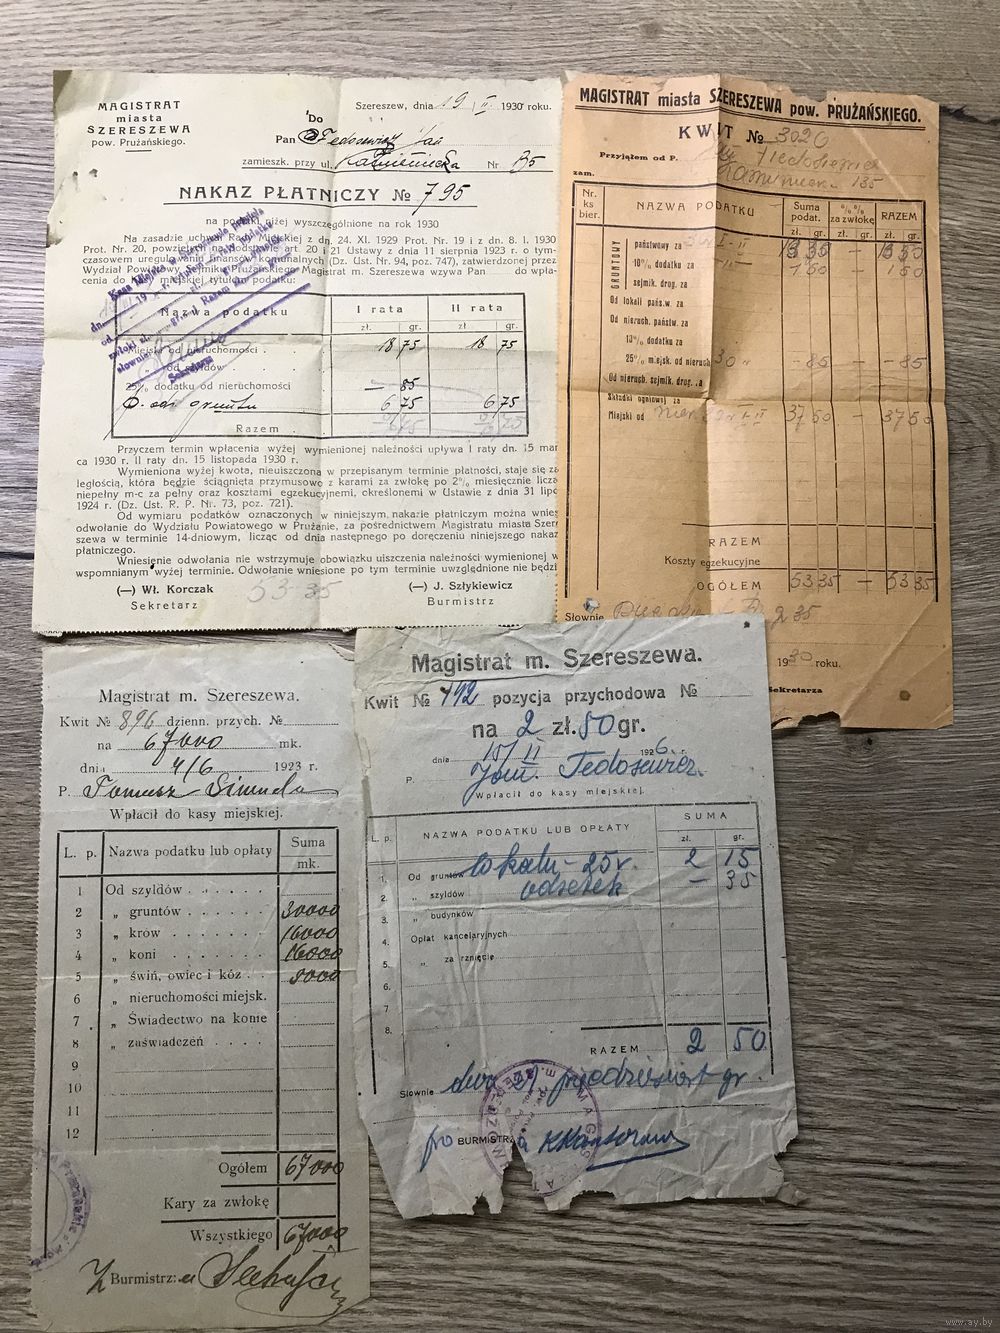 MAGISTRAT
miasta
SZERESZEWA
pow. Prużańskiego.
Szereszew, dnia 19 II 1930 roku.
Do
Pan Fedosewicz Jan
zamieszk. przy ul. Nr 35
NAKAZ PŁATNICZY № 795
na podatki niżej wyszczególnione na rok 1930
Na zasadzie uchwał Rady Miejskiej z dn. 24. XI. 1929 Prot. Nr. 19 i z dn. 8. I. 1930
Prot. Nr. 20, powziętej na podstawie art. 20 i 21 Ustawy z dnia 11 sierpnia 1923 r. o tym-
czasowem uregulowaniu finansów komunalnych (Dz. Ust. Nr. 94, poz. 747), zatwierdzonej przez
Wydział Powiatowy Sejmiku Prużańskiego Magistrat m. Szereszewa wzywa Pan do wpła-
cenia do kasy miejskiej tytułem podatku:
Kasa Miejska w Szereszewie
Sekretarz
Nazwa podatku I rata II rata
zł. gr. zł. gr.
Miejski od nieruchomości 18 75 18 75
„ od szyldów
25% dodatku od nieruchomości — 85
P. od gruntu 6 75 6 75
Razem
Przyczem termin wpłacenia wyżej wymienionej należności upływa I raty dn. 15 mar
ca 1930 r. II raty dn. 15 listopada 1930 r.
Wymieniona wyżej kwota, nieuiszczona w przepisanym terminie płatności, staje się za
ległością, która będzie ściągnięta przymusowo z karami za zwłokę po 2% miesięcznie licza
niepełny m-c za pełny oraz kosztami egzekucyjnemi, określonemi w Ustawie z dnia 31 lipc
1924 r. (Dz. Ust. R. P. Nr. 73, poz. 721).
Od wymiaru podatków oznaczonych w niniejszym nakazie płatniczym można wnieś
odwołanie do Wydziału Powiatowego w Prużanie, za pośrednictwem Magistratu miasta Szer
szewa w terminie 14-dniowym, licząc od dnia następnego po doręczeniu niniejszego nakaz
płatniczego.
Wniesienie odwołania nie wstrzymuje obowiązku uiszczenia należności wymienionej w
wspomnianym wyżej terminie. Odwołanie wniesione po tym terminie uwzględnione nie będzi
(—) Wł. Korczak
Sekretarz
53-35
(—) J. Szłykiewicz
Burmistrz
MAGISTRAT miasta SZERESZEWA pow. PRUŻAŃSKIEGO.
KWIT № 3020
Przyjąłem od P.
zam. 135
Nr. ks bier. NAZWA PODATKU Suma podat. % % za zwłokę RAZEM
zł. gr. zł. gr. zł. gr.
GRUNTOWY
państwowy za I-II 13 50 13 50
10% dodatku za 1 50 1 50
sejmik. drog. za
Od lokali państw. za
Od nieruch. państw. za
10% dodatku za
25% miejsk. od nieruch 30 — 85 — — 85
Od nieruch. sejmik. drog. za
Składki ogniowej za
Miejski od I-II 37 50 — 37 50
RAZEM
Koszty egzekucyjne
OGÓŁEM 53 35 — 53 35
Słownie 35
1930 roku.
Sekretarza
Magistrat m. Szereszewa.
Kwit № 896 dzienn. przych. №
na 67000 mk.
dnia 4/6 1923 r.
P. Tomasz
Wpłacił do kasy miejskiej.
L. p. Nazwa podatku lub opłaty Suma
mk.
1 Od szyldów
2 „ gruntów 30000
3 „ krów 16000
4 „ koni 16000
5 „ świń, owiec i kóz 5000
6 „ nieruchomości miejsk.
7 „ Świadectwo na konie
8 „ zaświadczeń
9
10
11
12
Ogółem 67000
Kary za zwłokę
Wszystkiego 67000
Z Burmistrz:
Magistrat m. Szereszewa.
Kwit № 492 pozycja przychodowa №
na 2 zł. 50 gr.
dnia 15/II 1926 r.
P. Jan Fedosewicz
Wpłacił do kasy miejskiej.
L. p. NAZWA PODATKU LUB OPŁATY SUMA
zł. gr.
1. Od gruntów lokalu - 25 r. 2 15
2. „ szyldów odsetek — 35
3. „ budynków
4. Opłat kancelaryjnych
5. „ za rznięcie
6.
7
8.
RAZEM 2 50
Słownie dwa zł pięćdziesiąt gr.
pro BURMISTRZ
www.ay.by